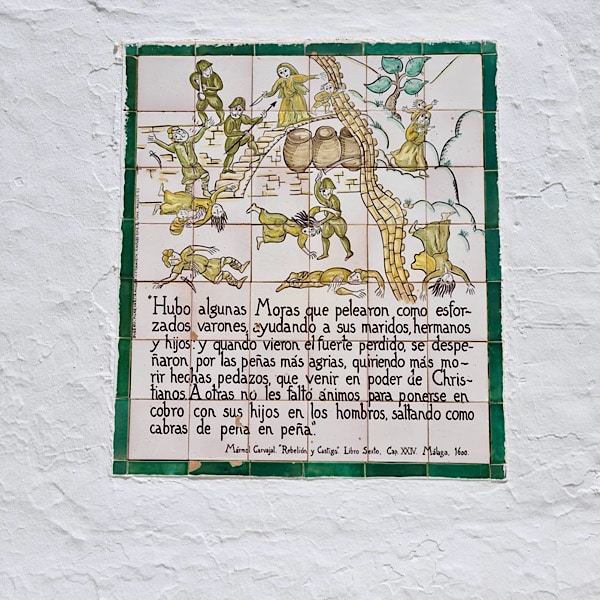 "Hubo algunas Moras que pelearon como esfor-
zados varones, ayudando a sus maridos, hermanos
y hijos: y quando vieron el fuerte perdido, se despe-
ñaron por las peñas más agrias, quiriendo más mo-
rir hechas pedazos, que venir en poder de Chris-
tianos. A otras no les faltó ánimos para ponerse en
cobro con sus hijos en los hombros, saltando como
cabras de peña en peña".
Mármol Carvajal. "Rebelión y Castigo" Libro Sexto. Cap. XXIV. Málaga, 1600.